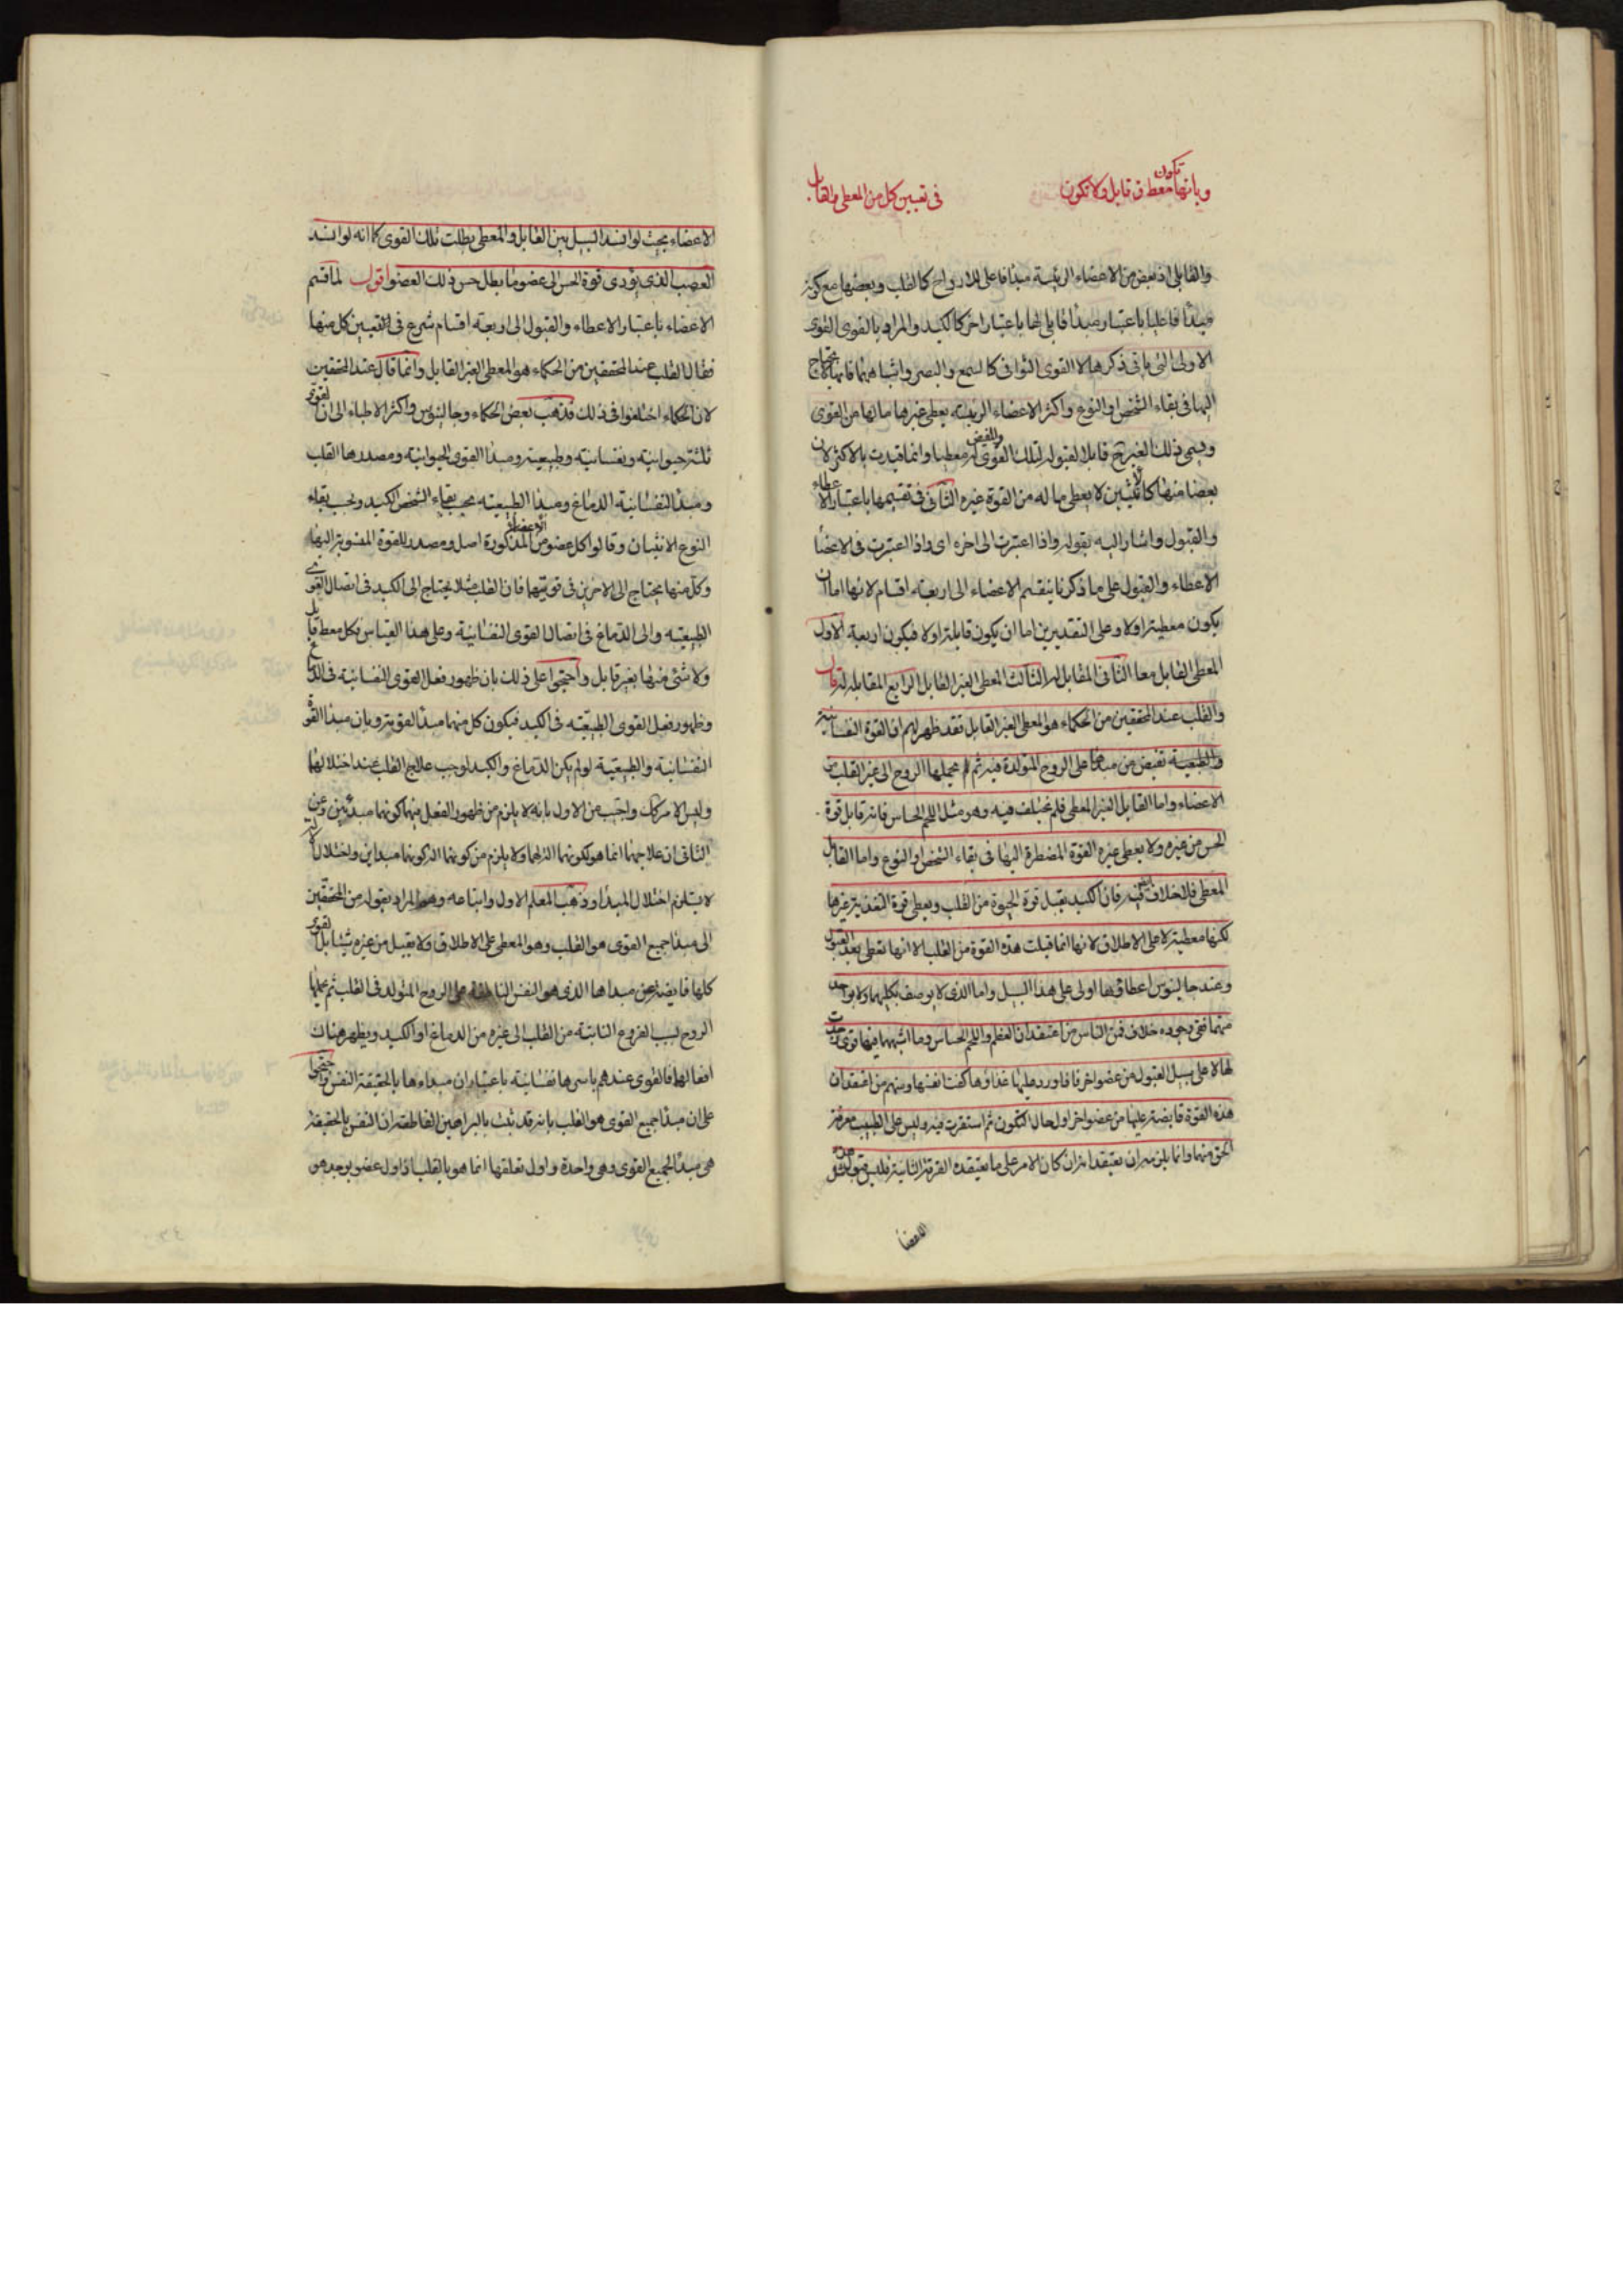 وبانها تكون معط وقابل ولا تكون
فى تعيين كل من المعطى والقابل
والقابلى اذ بعض من الاعضاء الرئيسة مبدأ فاعلى للارواح كالقلب وبعضها مع كونه
مبدأ فاعليا باعتبار مبدأ قابلى لها باعتبار اخر كالكبد والمراد بالقوى القوى
الاولى التى ياتى ذكرها لا القوى الثوانى كالسمع والبصر واشباههما فانها لا يحتاج
اليها فى بقاء الشخص او النوع واكثر الاعضاء الرئيسة يعطى غيرها ما لها من القوى
ويسمى ذلك الغير ح قابلا لقبوله لتلك القوى والمفيض معطيا وانما قيدت بالاكثر لان
بعضا منها كالانثيين لا يعطى ما له من القوة غيره الثانى فى تقسيمها باعتبار الاعطاء
والقبول واشار اليه بقوله واذا اعتبرت الى اخره اى واذا اعتبرت فى الاعضا
الاعطاء والقبول على ما ذكرنا ينقسم الاعضاء الى اربعة اقسام لانها اما ان
يكون معطية اولا وعلى التقديرين اما ان يكون قابلة اولا فيكون اربعة الاول
المعطى القابل معا الثانى المقابل له الثالث المعطى الغير القابل الرابع المقابل له قال
والقلب عند المحققين من الحكماء هو المعطى الغير القابل فقد ظهر لهم ان القوة النفسانية
والطبيعية تفيض من مبدئها على الروح المتولدة فيه ثم يحملها الروح الى غير القلب من
الاعضاء واما القابل الغير المعطى فلم يختلف فيه وهو مثل اللحم الحساس فانه قابل قوة
الحس من غيره ولا يعطى غيره القوة المضطرة اليها فى بقاء الشخص او النوع واما القابل
المعطى فلا خلاف فيه فان الكبد يقبل قوة الحيوة من القلب ويعطى قوة التغذية غيرها
لكنها معطية لا على الاطلاق لانها انما قبلت هذه القوة من القلب الا انها تعطى بعد القبول
وعند جالينوس اعطاؤها اولى على هذا السبيل واما الذى لا يوصف بكليهما ولا بواحد
منهما ففى وجوده خلاف فمن الناس من اعتقد ان العظم واللحم الحساس وما اشبههما فيها قوى
لها لا على سبيل القبول من عضو اخر فاذا ورد عليها غذاؤها كفت نفسها ومنهم من اعتقد ان
هذه القوة فايضة عليها من عضو اخر اول حال التكون ثم استقرت فيه وليس على الطبيب معرفة
الحق منهما وانما يلزمه ان يعتقد انه ان كان الامر على ما يعتقده الفرقة الثانية فليس قبول هذه
الاعضا
الاعضاء بحيث لو انسد السبيل بين القابل والمعطى بطلت تلك القوى كما انه لو انسد
العصب الذى يؤدى قوة الحس الى عضو ما بطل حس ذلك العضو اقول لما قسم
الاعضاء باعتبار الاعطاء والقبول الى اربعة اقسام شرع فى التعيين كل منها
فقال القلب عند المحققين من الحكماء هو المعطى الغير القابل وانما قال عند المحققين
لان الحكماء اختلفوا فى ذلك فذهب بعض الحكماء وجالينوس واكثر الاطباء الى ان القوى
ثلثة حيوانية ونفسانية وطبيعية ومبدأ القوى الحيوانية ومصدرها القلب
ومبدأ النفسانية الدماغ ومبدأ الطبيعية بحسب بقاء الشخص الكبد وبحسب بقاء
النوع الانثيان وقالوا كل عضو من الاعضاء المذكورة اصل ومصدر للقوة المنسوبة اليها
وكل منها يحتاج الى الاخرين فى قوتيهما فان القلب مثلا يحتاج الى الكبد فى اتصال القوى
الطبيعية والى الدماغ فى اتصال القوى النفسانية وعلى هذا القياس فكل معط قابل
ولا شئ منها بغير قابل واحتجوا على ذلك بان ظهور فعل القوى النفسانية فى الدماغ
وظهور فعل القوى الطبيعية فى الكبد فيكون كل منهما مبدأ لقوته وبان مبدأ القوة
النفسانية والطبيعية لو لم يكن الدماغ والكبد لوجب علاج القلب عند اختلالها
وليس الامر كك واجيب عن الاول بانه لا يلزم من ظهور الفعل فيهما كونهما مبدئين وعن
الثانى ان علاجهما انما هو لكونهما الة لها ولا يلزم من كونهما الة كونهما مبداين واختلال الالة
لا يستلزم اختلال المبدأ وذهب المعلم الاول واتباعه وهو المراد بقوله من المحققين
الى مبدأ جميع القوى هو القلب وهو المعطى على الاطلاق ولا يقبل من غيره شيئا بل القوى
كلها فايضة عن مبداها الذى هو النفس الناطقة على الروح المتولد فى القلب ثم يحملها
الروح بسبب الفروع النابتة من القلب الى غيره من الدماغ او الكبد ويظهر هناك
افعالها فالقوى عندهم باسرها نفسانية باعتبار ان مبداءها بالحقيقة النفس واحتجوا
على ان مبدأ جميع القوى هو القلب بانه قد ثبت بالبراهين القاطعة ان النفس بالحقيقة
هى مبدأ لجميع القوى وهى واحدة واول تعلقها انما هو بالقلب اذ اول عضو يوجد هو